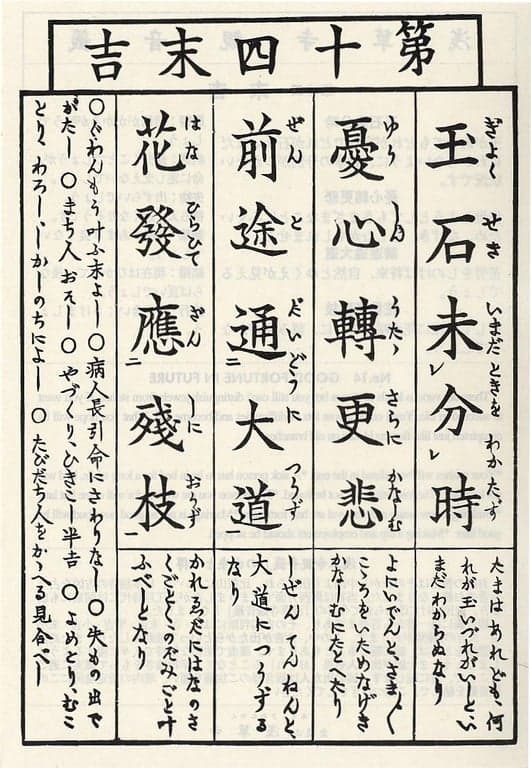 第十四末吉
玉石未分時
ぎよくせきいまだときをわかたず
たまはあれども、何
れが玉いづれがいしといい
まだわからぬなり
憂心轉更悲
ゆうしんうたゝさらにかなしむ
よにいでんとさま〴〵
こゝろをいためなげき
かなしむにたとへたり
前途通大道
ぜんとだいどうにつうず
しぜんてんねんと、
大道につうずる
なり
花發應殘枝
はなひらひてざんしにおうず
かれゑだにはなのさ
くごとくのぞみごと叶
ふべしとなり
〇ぐわんもう叶ふ末よし〇病人長引命にさわりなし〇失もの出で
がたし〇まち人おそし〇やづくり、ひきこし半吉〇よめとりむこ
とりわろししかしのちによし〇たびだち人をかゝへる見合べし